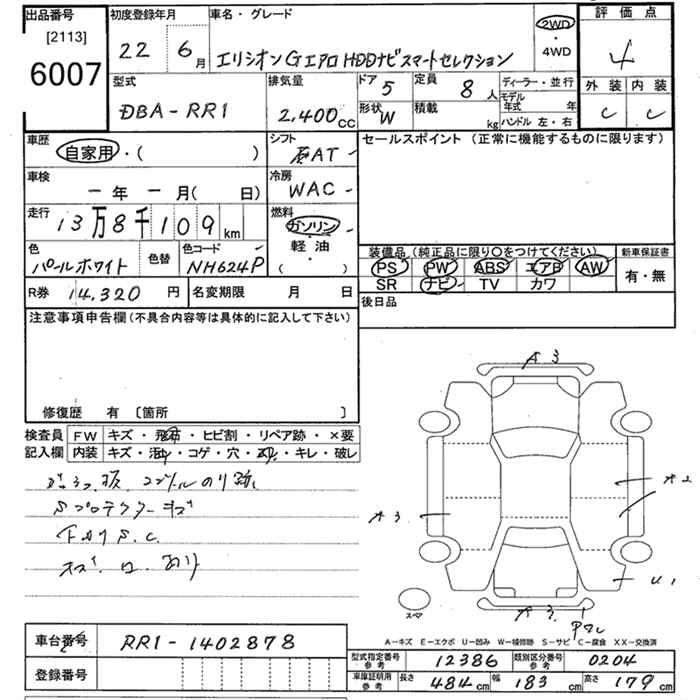 出品番号
[2113]
6007
初度登録年月
22 6月
車名・グレード
エリシオン GエアロHDDナビスマートセレクション
2WD
・
4WD
評価点
4
外装 内装
C C
型式
DBA-RR1
排気量
2,400cc
ドア 5
形状 W
定員 8人
積載 kg
ディーラー・並行
モデル年式 年
ハンドル 左・右
車歴
自家用・( )
シフト
AT
セールスポイント (正常に機能するものに限ります)
車検
一年 一月( 日)
冷房
WAC
走行
13万8千109km
燃料
ガソリン
・
軽油
・
( )
色
パールホワイト
色替
色コード
NH624P
装備品(純正品に限り○をつけてください)
PS PW ABS エアB AW
SR ナビ TV カワ
新車保証書
有・無
R券 14,320円
名変期限 月 日
後日品
注意事項申告欄(不具合内容等は具体的に記入して下さい)
修復歴 有 〔箇所 〕
検査員記入欄
FW キズ・飛石・ヒビ割・リペア跡・×要
内装 キズ・汚れ・コゲ・穴・・キレ・破レ
Sプロテクターキズ
下廻りS.C.
A3
A2
A3
U1
A3
スペア
A-キズ E-エクボ U-凹み W-補修跡 S-サビ C-腐食 XX-交換済
車台番号 RR1-1402878
登録番号
型式指定番号 参考 12386
類別区分番号 参考 0204
車庫証明用 参考 長さ 484cm 幅 183cm 高さ 179cm